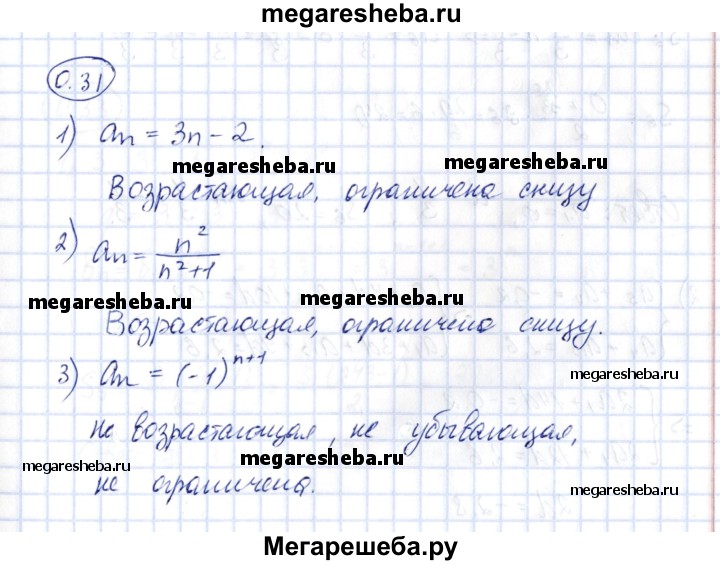 megaresheba.ru
0.31
1) an = 3n - 2.
megaresheba.ru megaresheba.ru
Возрастающая, ограничена снизу
2) an = n²/n²+1
megaresheba.ru megaresheba.ru
Возрастающая, ограничено снизу.
3) an = (-1)ⁿ⁺¹
megaresheba.ru
не возрастающая, не убывающая,
megaresheba.ru megaresheba.ru
не ограничена.
megaresheba.ru
Мегарешеба.ру